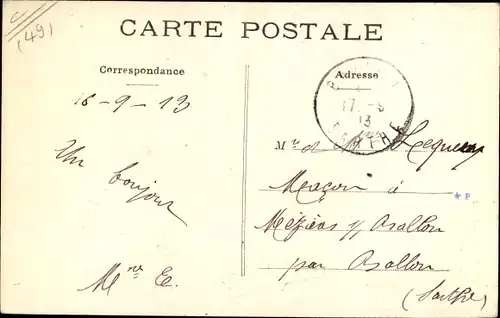 (49)
CARTE POSTALE
Correspondance
Adresse
16-9-13
17 -9
13
SARTHE
Un bonjour
Mr et Me Lequeux
Maçon à
Mézières s/ Ballon
par Ballon
(Sarthe)
Mme E.